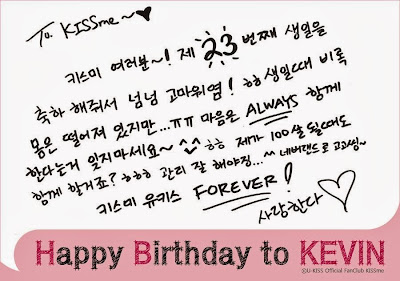 To. KISSme~♥
키스미 여러분~! 제 23 번째 생일을
축하 해줘서 넘넘 고마워염! ㅎㅎ 생일때 비록
몸은 떨어져 있지만...ㅠㅠ 마음은 ALWAYS 함께
한다는거 잊지마세요~ ^_^ ㅎㅎ 제가 100살 될때도
함께 할거죠? ㅎㅎㅎ 관리 잘 해야징...^^ 네버랜드로 고고씽~
키스미 유키스 FOREVER!
사랑한다♡
Happy Birthday to KEVIN
ⓒU-KISS Official FanClub KISSme